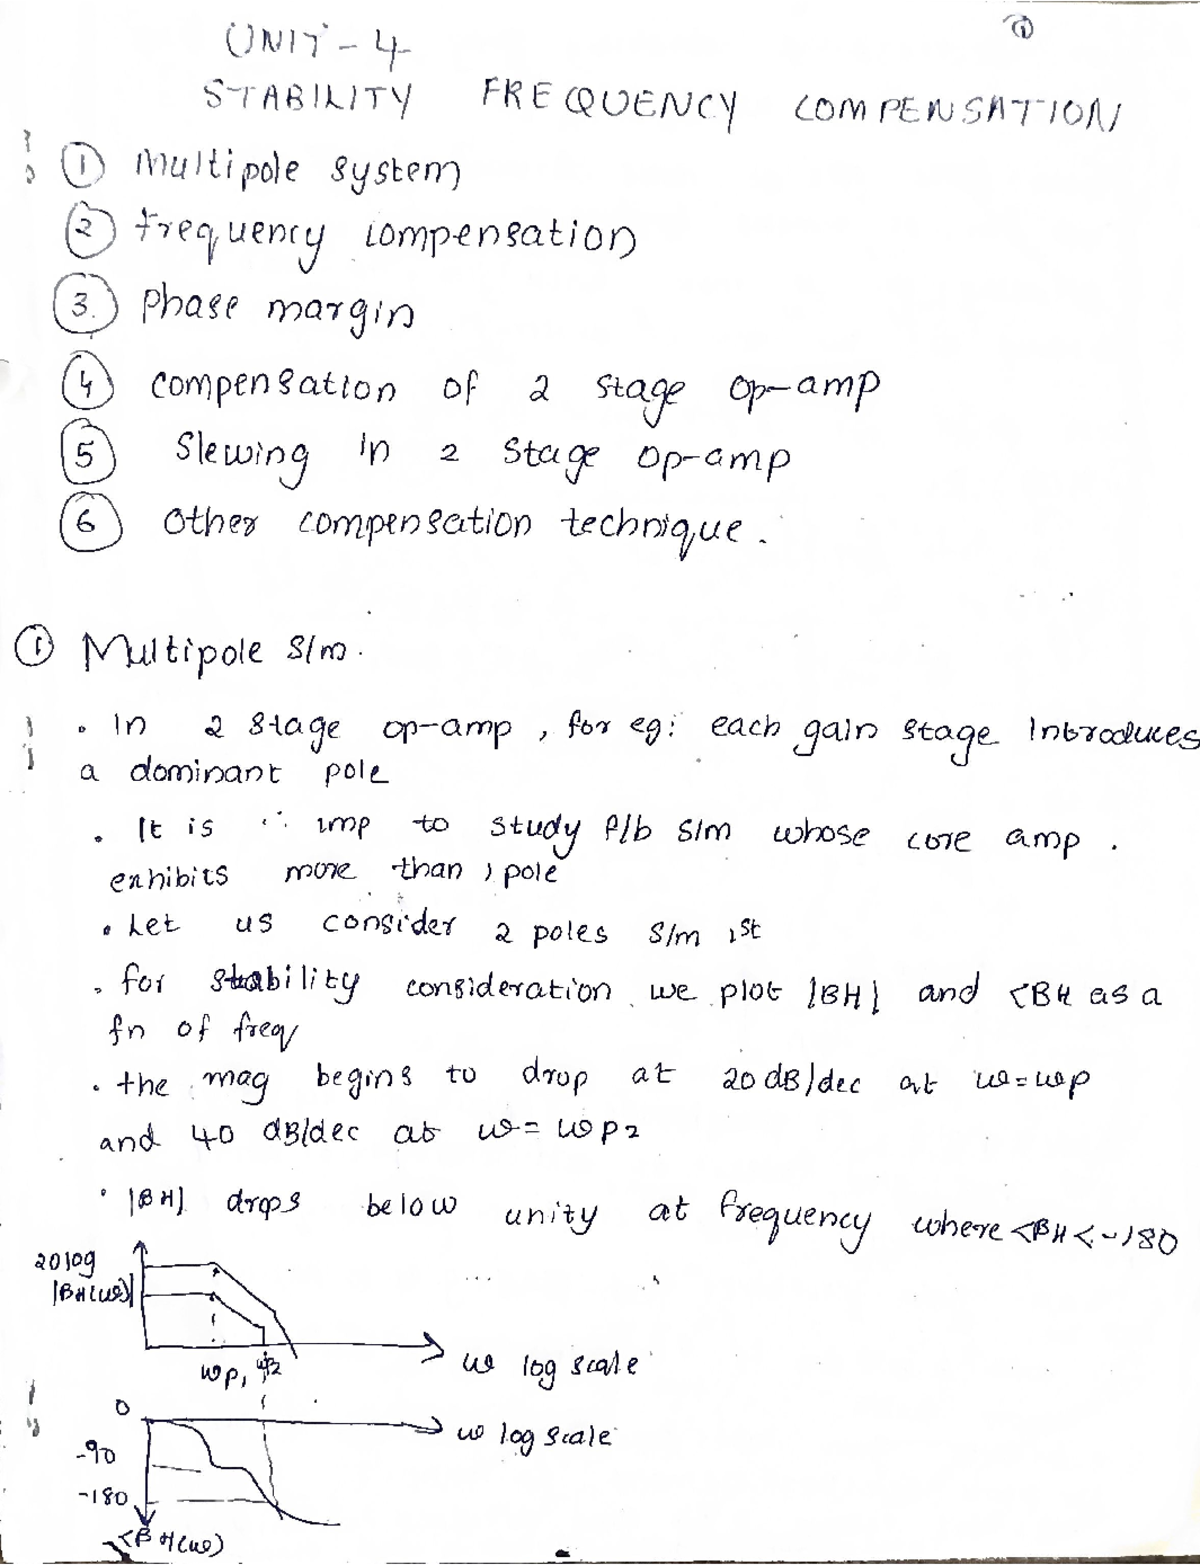 ①
UNIT - 4
STABILITY FREQUENCY COMPENSATION
① Multipole system
② frequency compensation
③. Phase margin
④ compensation of 2 stage op-amp
⑤ Slewing in 2 stage op-amp
⑥ Other compensation technique.
① Multipole S/m.
• In 2 stage op-amp, for eg: each gain stage Introduces
a dominant pole
• It is ∴ imp to study f/b s/m whose core amp.
exhibits more than 1 pole
• Let us consider 2 poles S/m 1st
• for stability consideration we plot |BH| and <BH as a
fn of freq
• the mag begins to drop at 20 dB/dec at ω=ωp
and 40 dB/dec at ω=ωp2
• |BH| drops below unity at frequency where <BH<-180
20log
|BH(ω)|
ωp1 ωp2
ω log scale
0
ω log scale
-90
-180
<BH(ω)